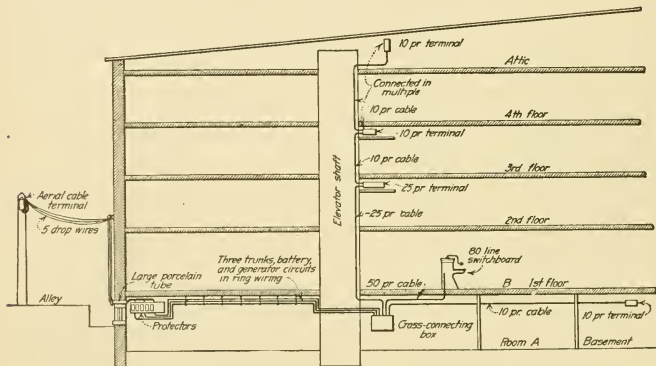 10 pr terminal
Attic
Connected in
multiple
10 pr cable
4th floor
10 pr terminal
10 pr cable
3rd floor
25 pr terminal
Elevator shaft
25 pr cable
2nd floor
Aerial cable
terminal
5 drop wires
80 line
switchboard
Three trunks, battery,
and generator circuits
in ring wiring
Large porcelain
tube
50 pr cable
B 1st floor
Alley
Protectors
Cross-connecting
box
10 pr. cable
10 pr terminal
Room A
Basement